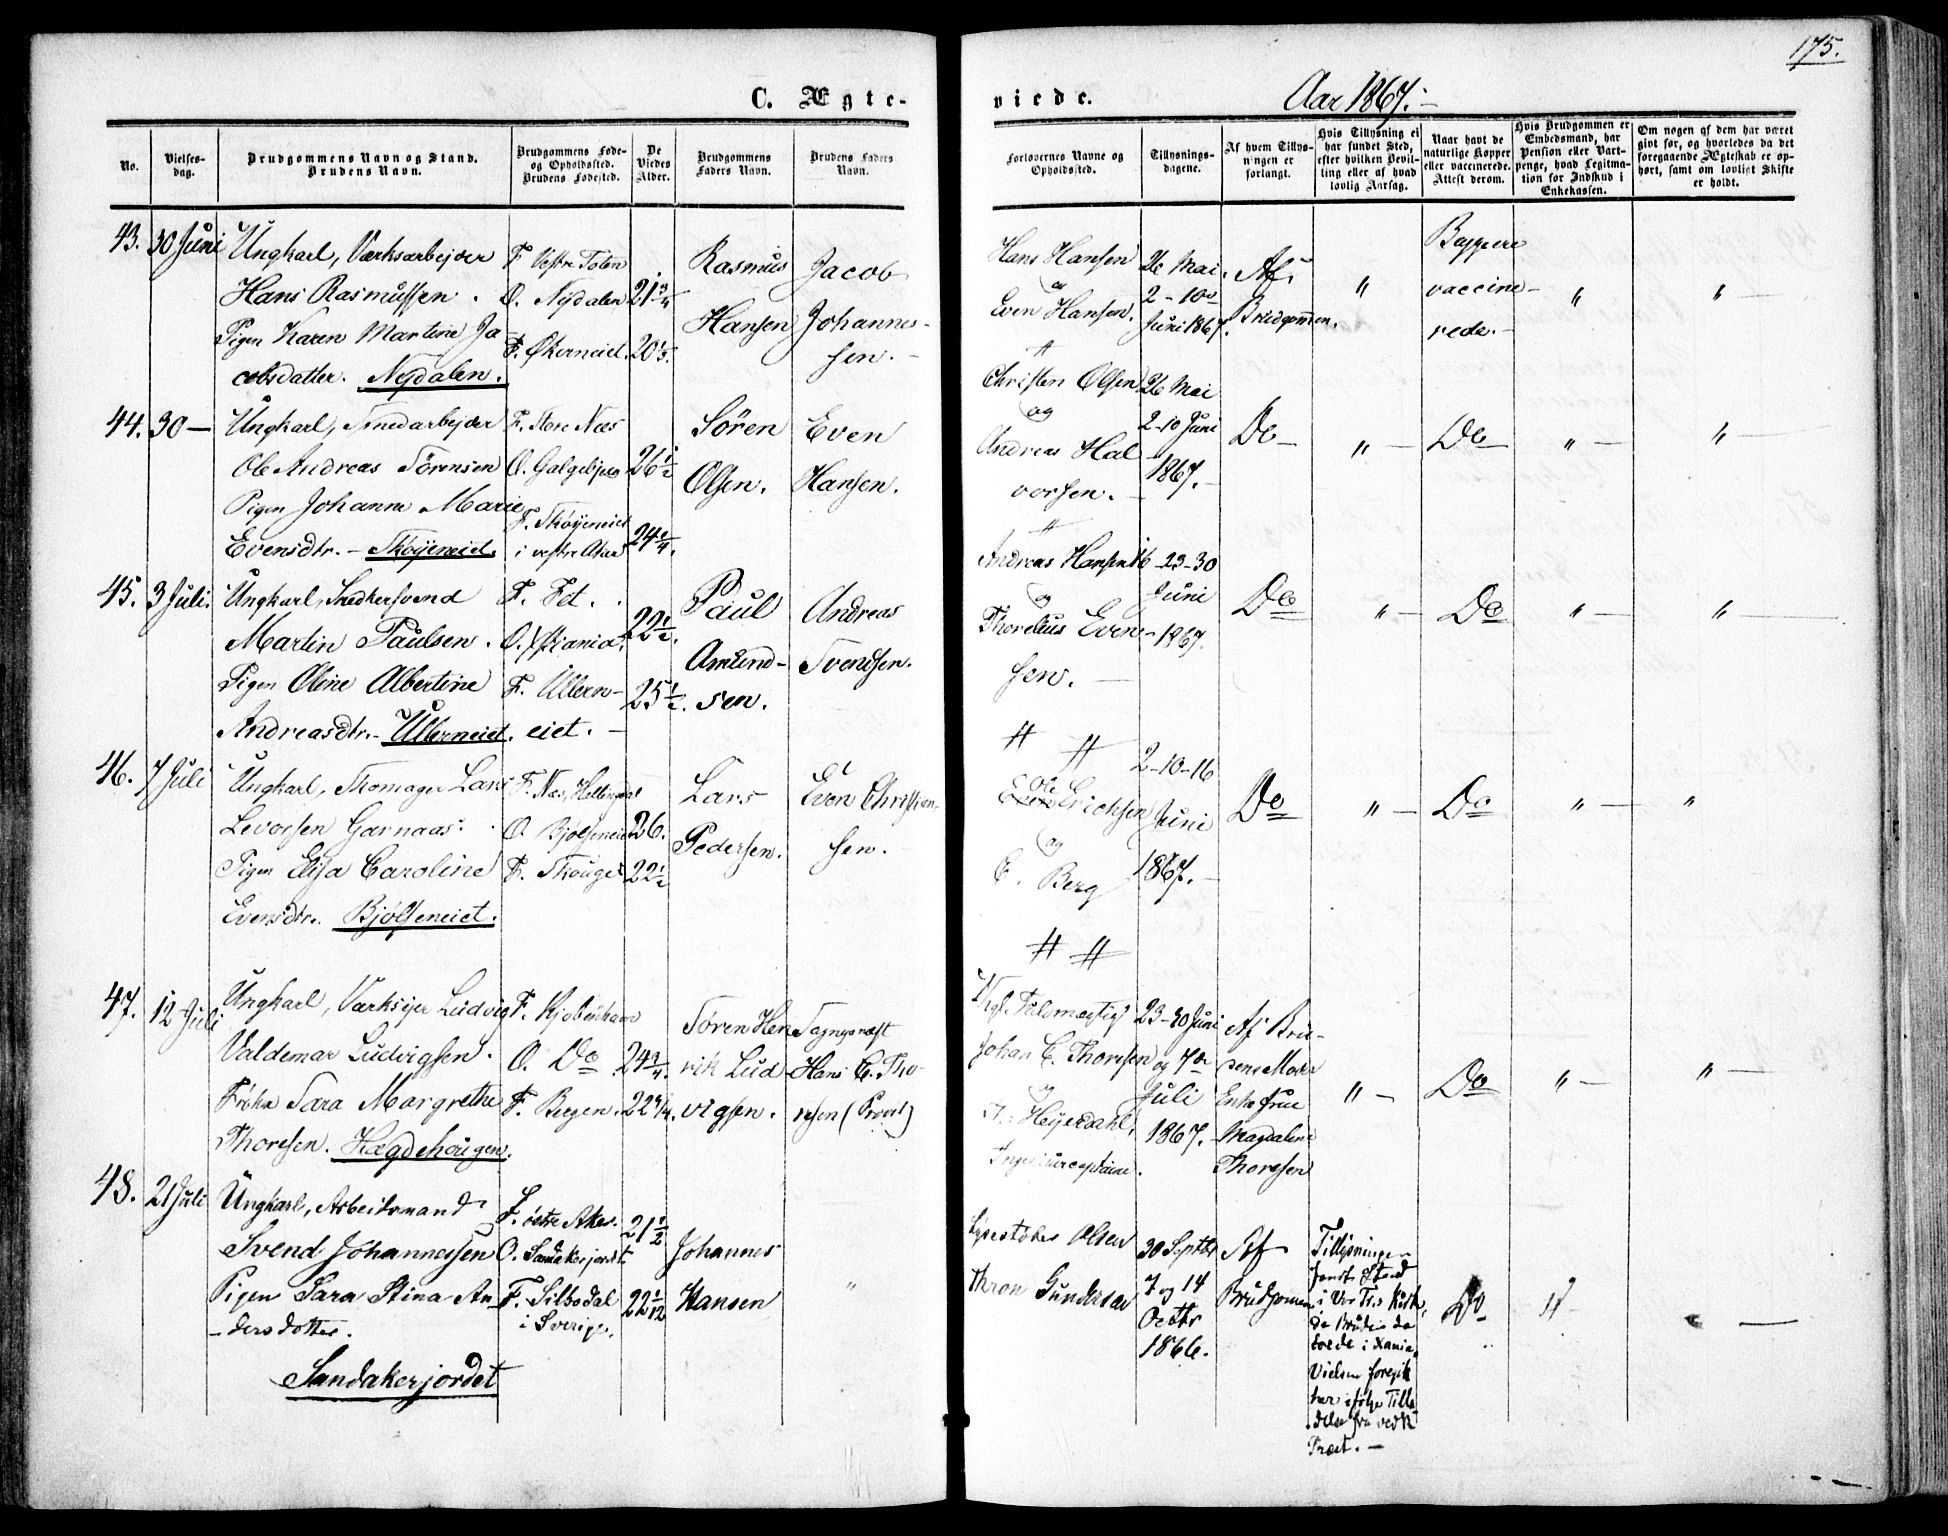 175.
C. Ægte-
viede.
Aar 1867.
No.
Vielses-
dag.
Brudgommens Navn og Stand.
Brudens Navn.
Brudgommens Føde-
og Opholdssted.
Brudens Fødested.
De
Viedes
Alder.
Brudgommens
Faders Navn.
Brudens Faders
Navn.
Forlovernes Navne og
Opholdssted.
Tillysnings-
dagene.
Af hvem Tillys-
ningen er
forlangt.
Hvis Tillysning ei
har fundet Sted,
efter hvilken Bevil-
ling eller af hvad
lovlig Aarsag.
Naar havt de
naturlige Kopper
eller vaccinerede.
Attest derom.
Hvis Brudgommen er
Embedsmand, har
Pension eller Vart-
penge, hvad Legitima-
tion for Indskud i
Enkekassen.
Om nogen af dem har været
gift før, og hvorledes da det
foregaaende Ægteskab er op-
hørt, samt om lovligt Skifte
er holdt.
43. 30 Juni
Ungkarl, Værksarbejder
Hans Rasmussen.
Pigen Karen Martine Ja
cobsdatter. Nydalen.
F. Vestre Toten
O. Nydalen
F. Økerneiet.
21 3/4
20 1/3.
Rasmus
Hansen
Jacob
Johannes-
sen.
Hans Hansen
og
Even Hansen.
26 Mai.
2 - 10de
Juni 1867.
Af
Brudgommen.
"
Begge ere
vaccine-
rede.
"
"
44. 30 —
Ungkarl, Smedarbejder
Ole Andreas Sørensen
Pigen Johanne Marie
Evensdtr. - Skøyeneiet.
F. Store Næs
O. Galgebjerg
F. Skøyeneiet
i vestre Aker
26 1/2
24 3/4.
Søren
Olsen.
Even
Hansen.
Christen Olsen
og
Andreas Hal
vorsen.
26 Mai
2-10 Juni
1867.
Do
"
Do
"
"
45. 3 Juli.
Ungkarl, Snedkersvend
Martin Paulsen.
Pigen Oline Albertine
Andreasdtr. - Ullerneiet.
F. Fet.
O. Xstiania.
F. Ullern-
eiet.
22 1/2.
25 1/2.
Paul
Amund-
sen.
Andreas
Svendsen.
Andreas Hansen
og
Thorelius Even-
sen.
16-23-30
Juni
1867.
Do
"
Do
"
"
46. 7 Juli
Ungkarl, Skomager Lars
Levorsen Garnaas.
Pigen Elisa Caroline
Evensdtr. Bjølseneiet.
F. Næs, Hallingdal
O. Bjølseneiet
F. Skouger
26.
22 1/2
Lars
Pedersen.
Even Christian-
sen.
Ole
Erichsen
og
E. Berg
2-10-16
Juni
1867.
Do
"
Do
"
"
47. 12 Juli
Ungkarl, Værkseier Ludvig
Valdemar Ludvigsen.
Frøkn Sara Margrethe
Thoresen. Hægdehougen.
F. Kjøbenhavn
O. Do
F. Bergen.
24 3/4.
22 3/4.
Søren Hen
rik Lud
vigsen.
Sognepræst
Hans C. Tho-
resen (Provst)
Johan C. Thoresen
og
Heyerdahl,
Ingenieurcaptaine.
23-30 Juni
og 7de
Juli
1867.
Af Bru-
dens Moder
Enkefrue
Magdalene
Thoresen
"
Do
"
"
48. 21 Juli
Ungkarl, Arbeidsmand
Svend Johannessen
Pigen Sara Stina An
dersdotter.
Sandakerjordet
F. østre Aker.
O. Sandakerjordet
F. Silbodal
i Sverige.
21 1/2
22 1/12
Johannes
Hansen
"
Olsen
Thron Gundersen
30 Septbr
7 og 14
Octbr
1866.
Af
Brudgommen
Tillysningen
fandt Sted
i Vor Frs Kirke,
da Bruden da
boede i Xania.
Vielsen foregik
her ifølge Tilla
delse fra vedk
Præst.
Do
"
"